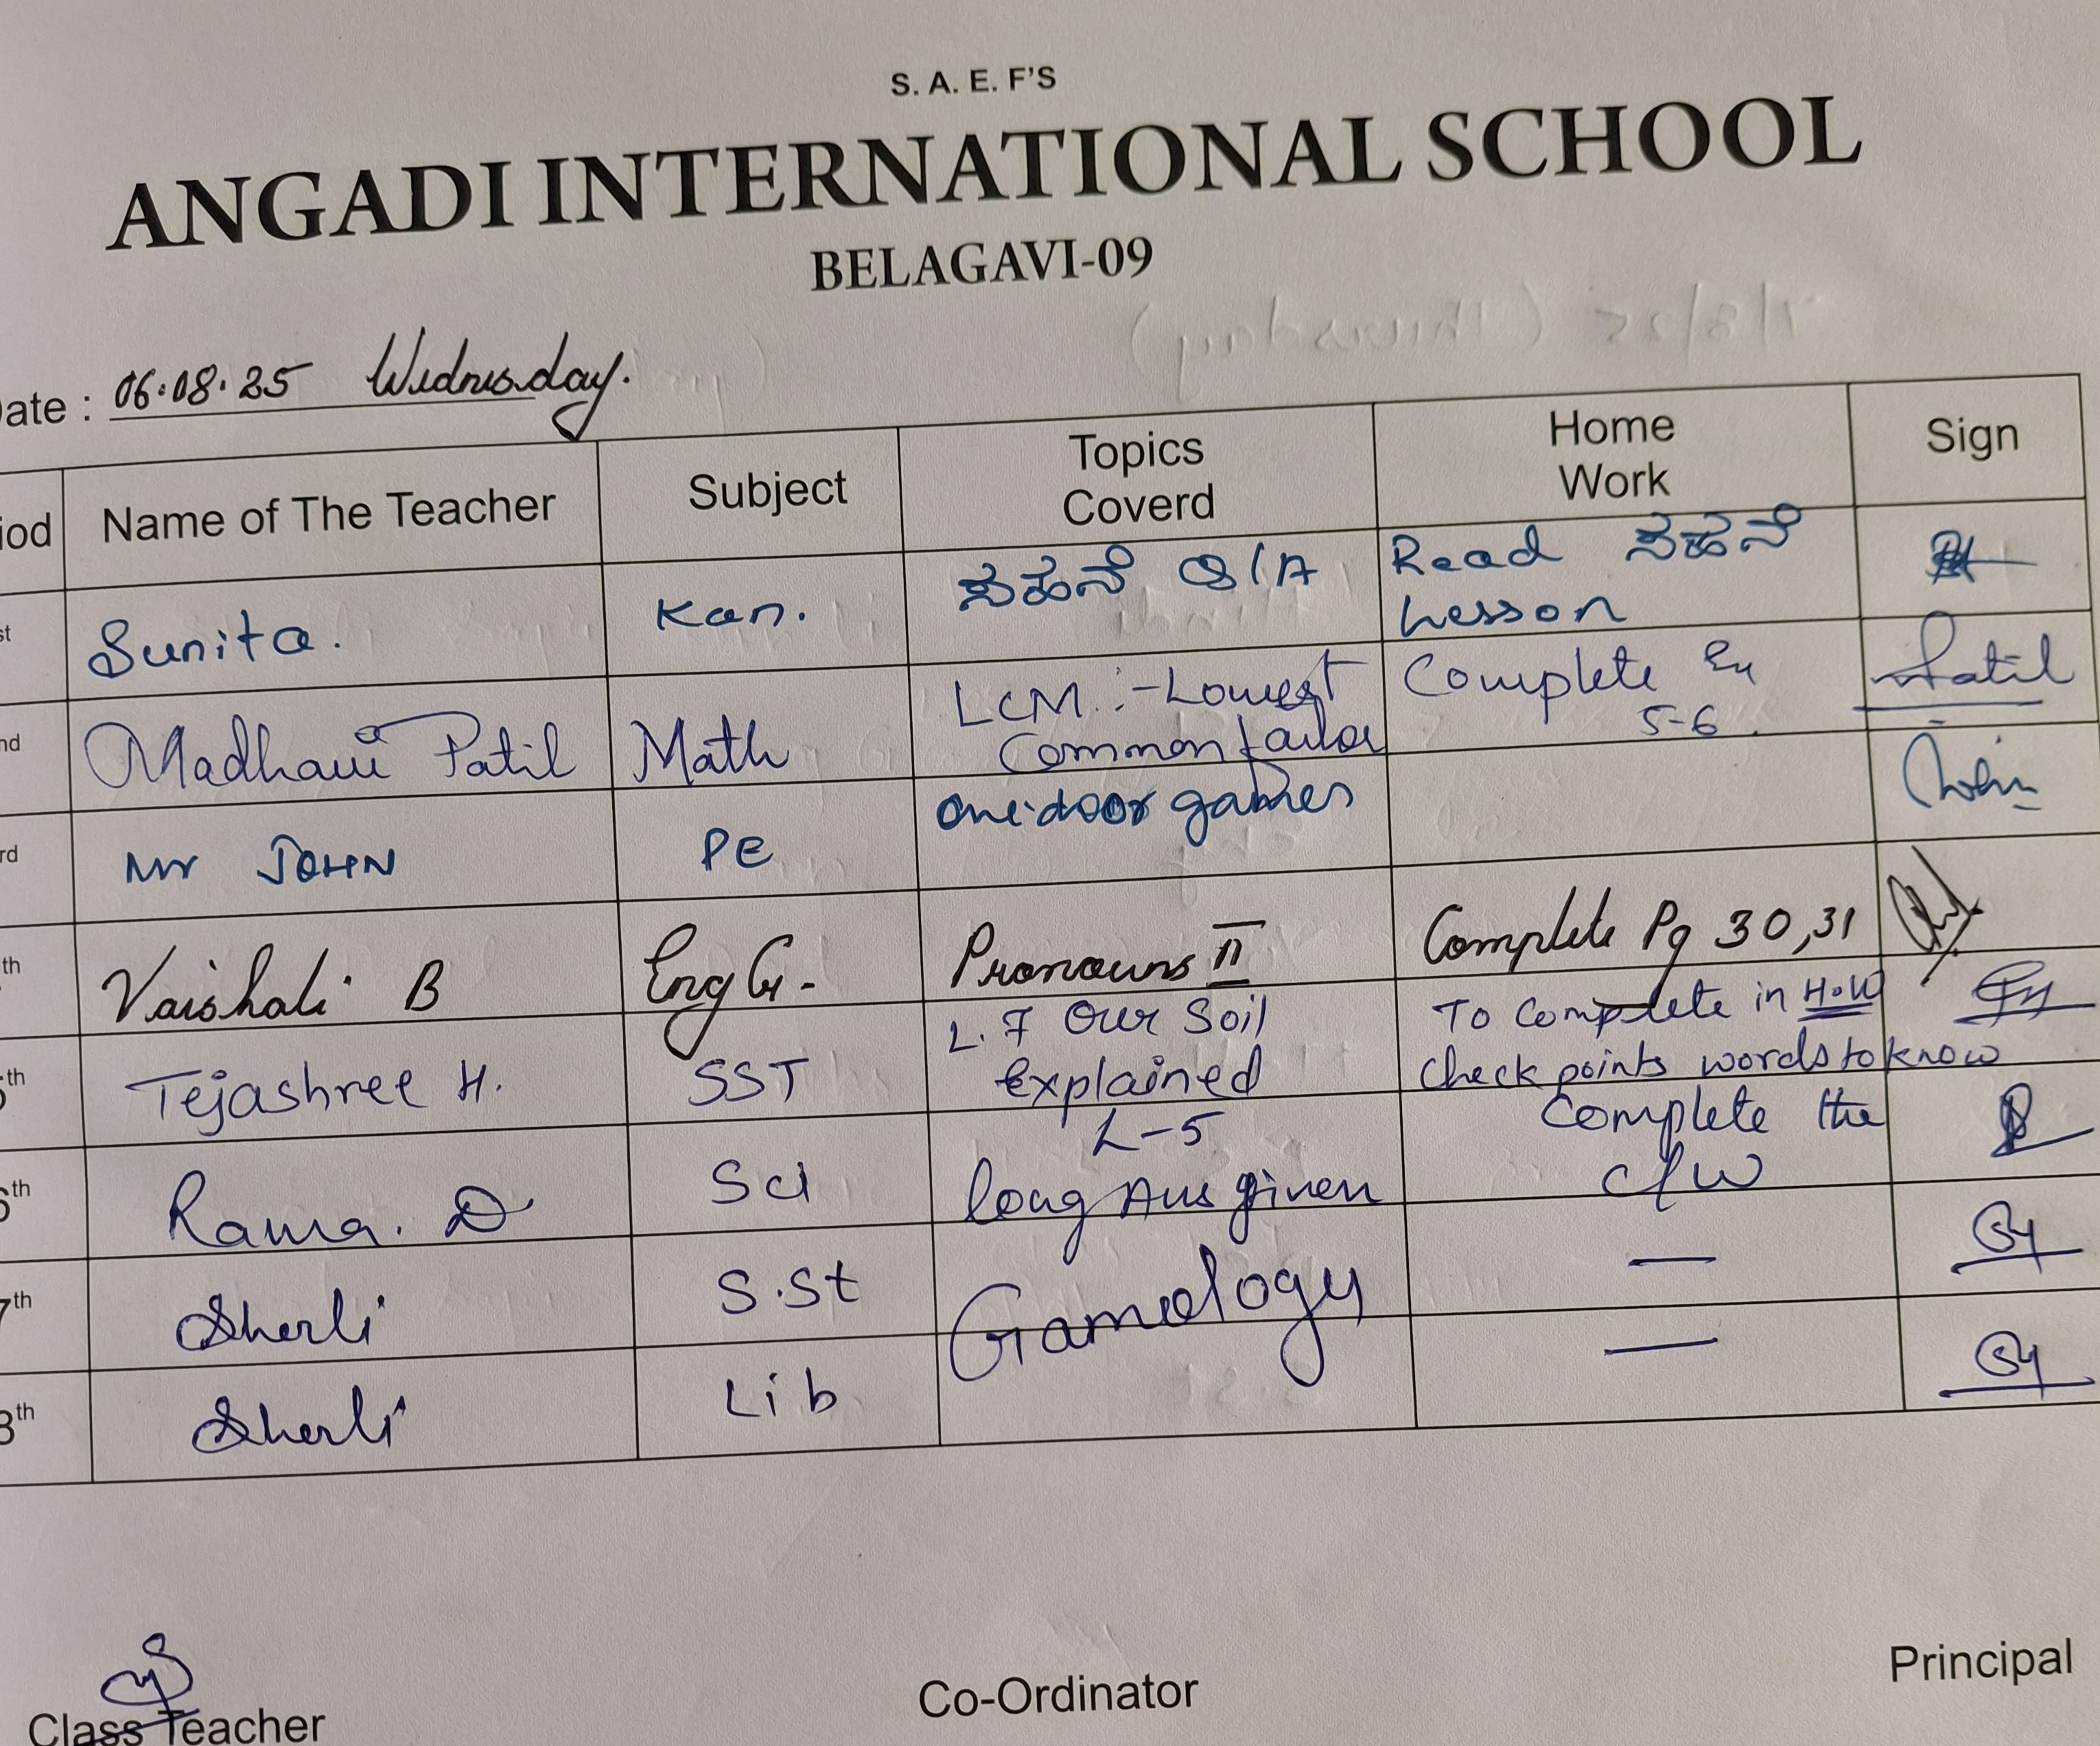 S. A. E. F'S
ANGADI INTERNATIONAL SCHOOL
BELAGAVI-09
ate : 06.08.25 Wednesday.
iod Name of The Teacher Subject Topics Coverd Home Work Sign
st Sunita. Kan. ಸಹನೆ Q/A Read ಸಹನೆ Lesson
nd Madhavi Patil Math LCM :- Lowest Common factor Complete Ex 5-6. Patil
rd Mr JOHN PE one door games John
th Vaishali B Eng Gr. Pronouns II Complete Pg 30,31
5th Tejashree H. SST L. 7 Our Soil explained To Complete in H.W check points words to know
6th Rama. D Sci L-5 long Ans given Complete the c/w
7th Sherli S.St Gameology —
8th Sherli Lib —
Class Teacher Co-Ordinator Principal